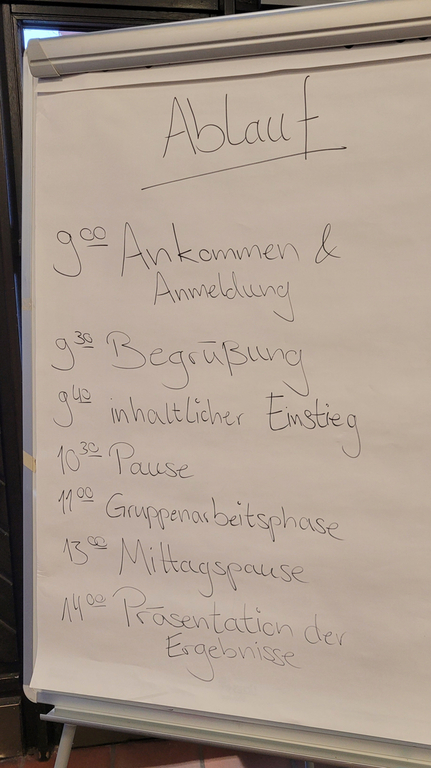 Ablauf
9⁰⁰ Ankommen &
Anmeldung
9³⁰ Begrüßung
9⁴⁰ inhaltlicher Einstieg
10³⁰ Pause
11⁰⁰ Gruppenarbeitsphase
13⁰⁰ Mittagspause
14⁰⁰ Präsentation der
Ergebnisse